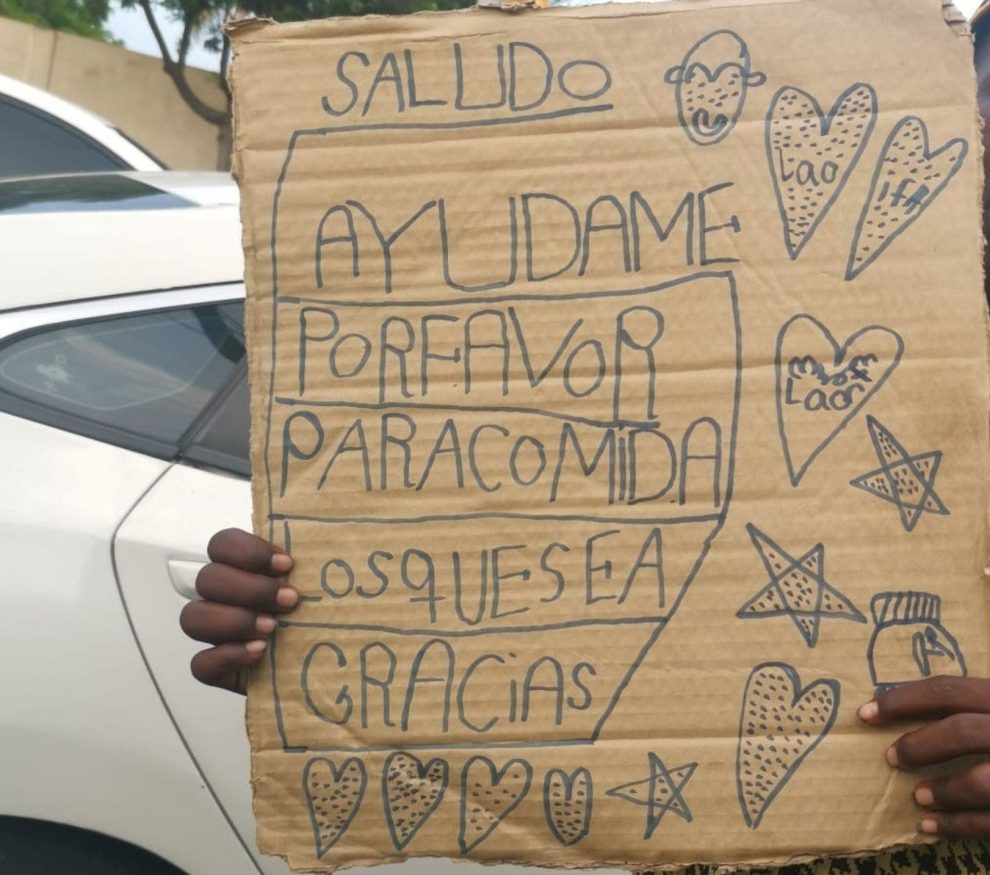 SALUDO
AYUDAME
PORFAVOR
PARACOMIDA
LOSQUESEA
GRACiAS
Lao